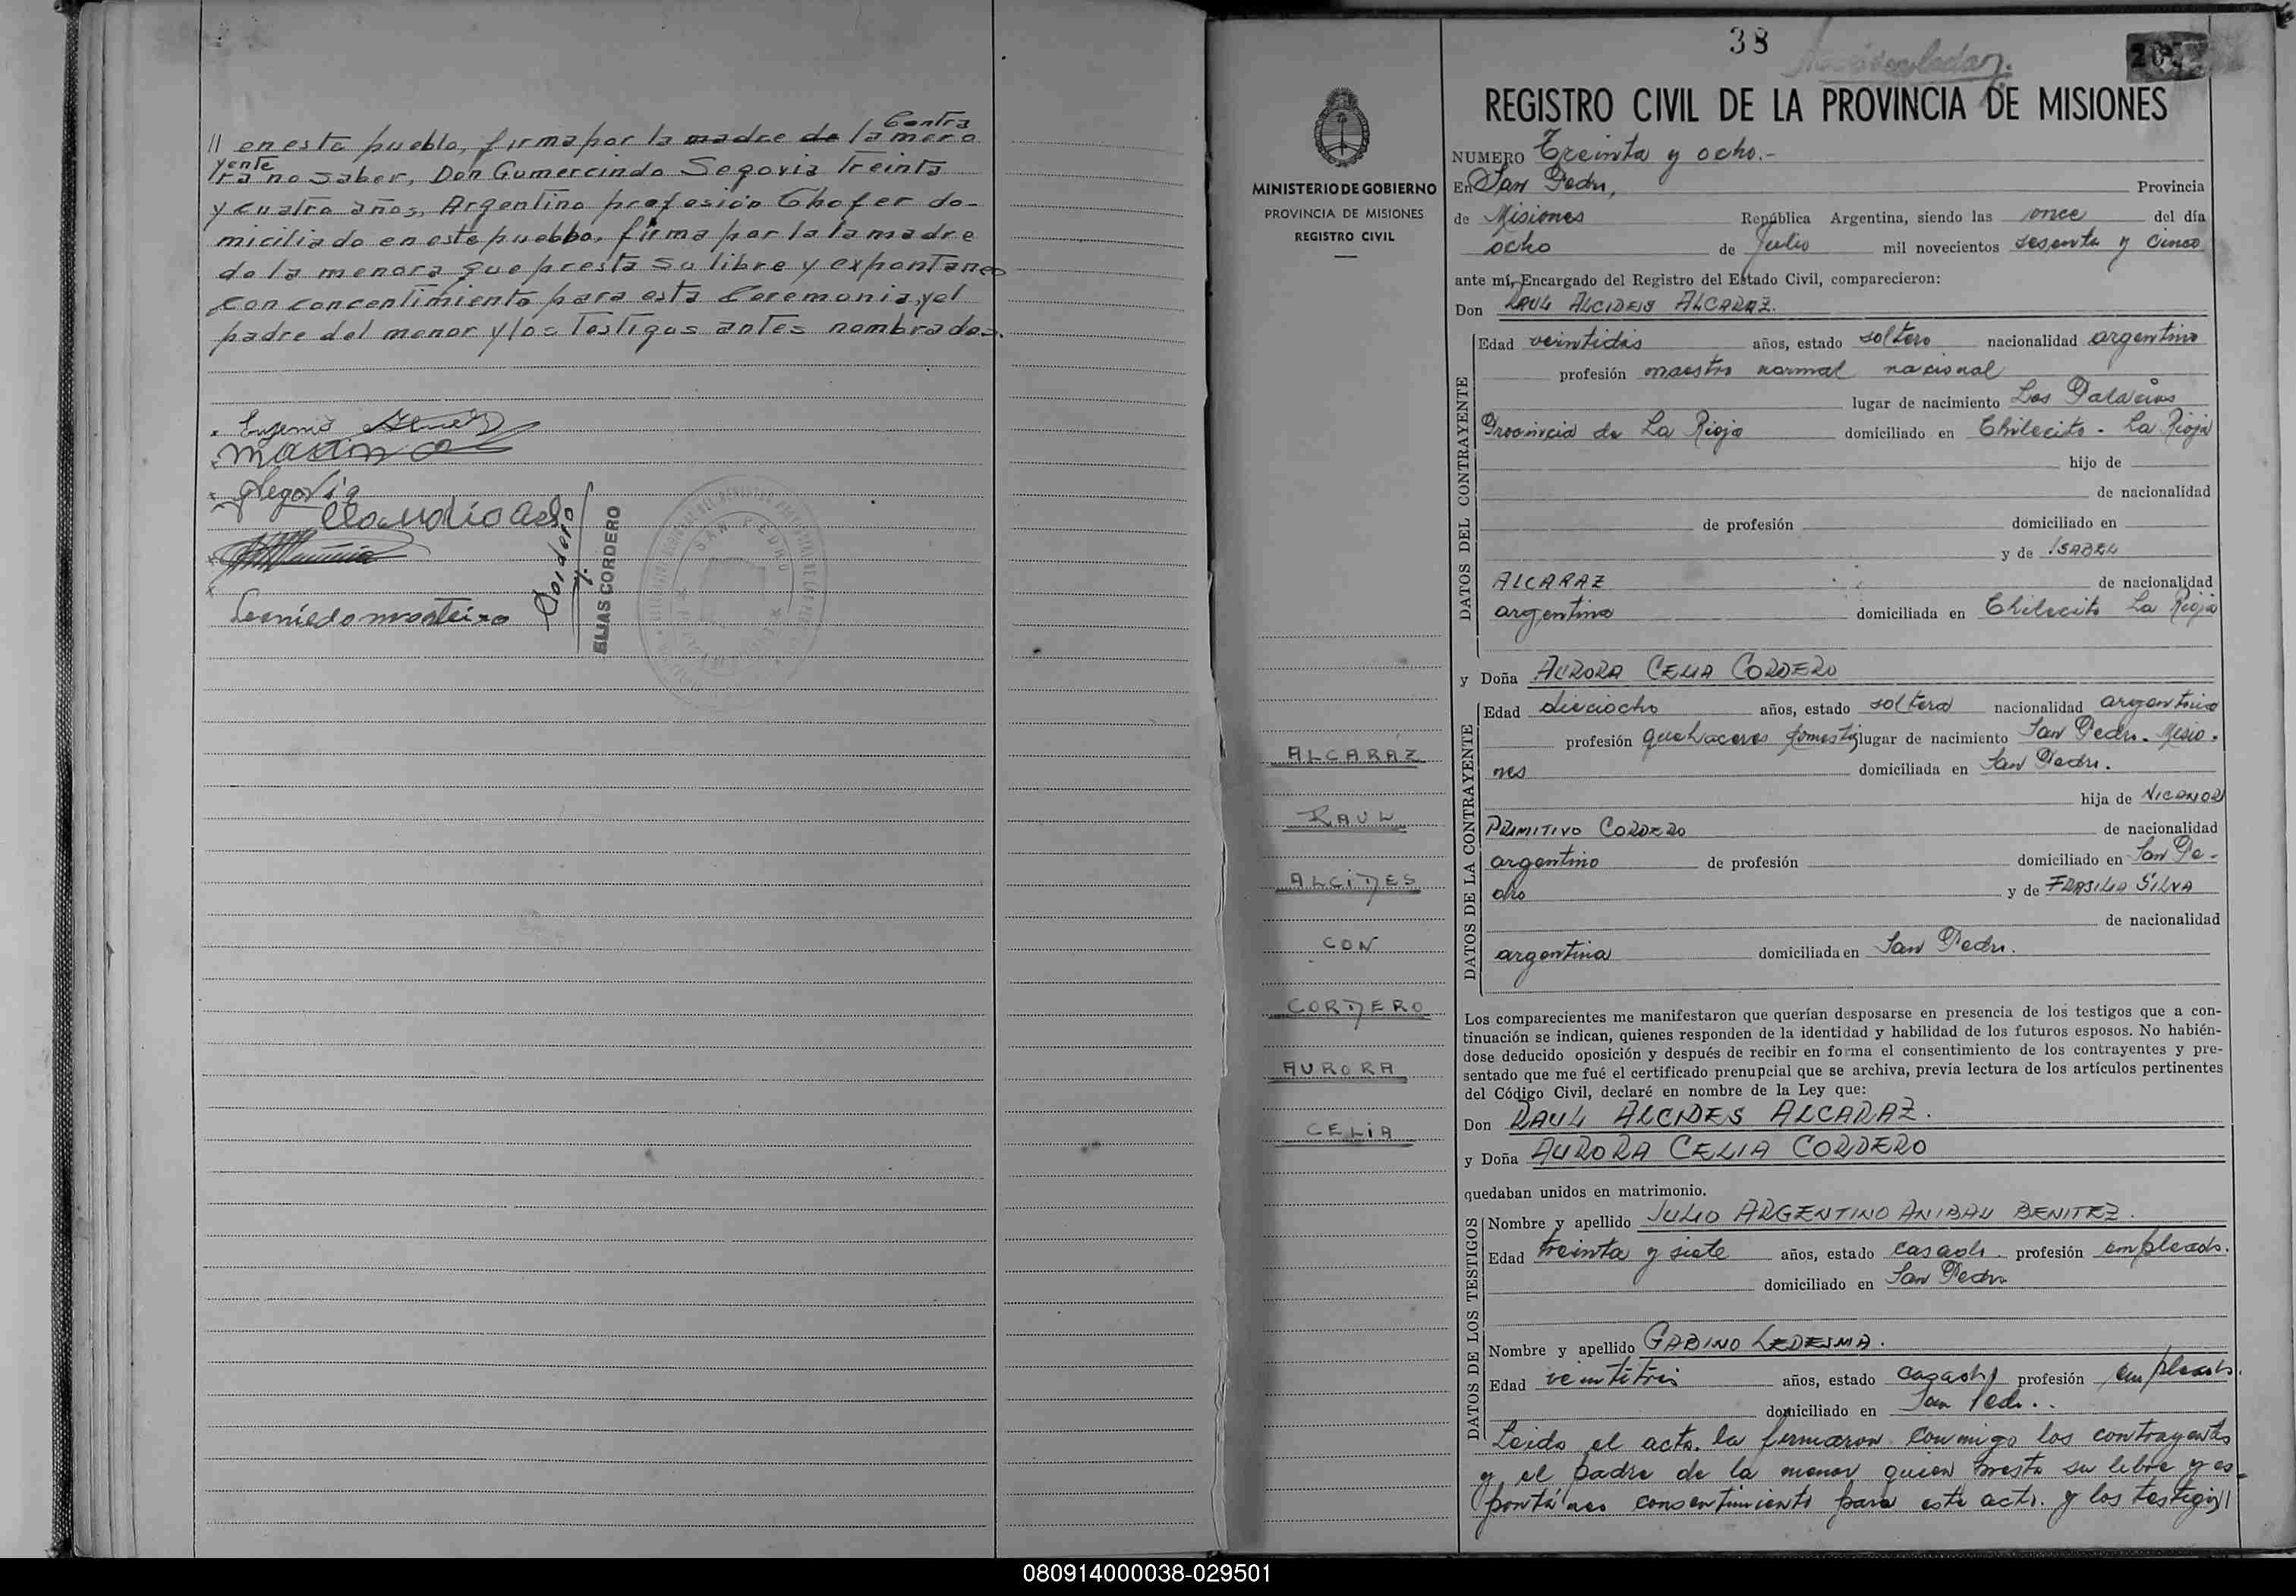 Contra
// en esta pueblo, firma por la madre de la mero
yente
ra no saber, Don Gumercindo Segovia Treinta
y cuatro años, Argentino profesión Chofer do-
miciliado en este pueblo, firma por la la madre
de la menora que presta su libre y expontaneo
con concentimiento para esta Ceremonia, y el
padre del menor y los Testigos antes nombrados.
Eugenio
Segovia
Claudio
Leonildo monteiro
Cordero
ELIAS CORDERO
SAN PEDRO
38
207
REGISTRO CIVIL DE LA PROVINCIA DE MISIONES
MINISTERIO DE GOBIERNO
PROVINCIA DE MISIONES
REGISTRO CIVIL
ALCARAZ
RAUL
ALCIDES
CON
CORDERO
AURORA
CELIA
NUMERO Treinta y ocho.-
En San Pedro, Provincia
de Misiones República Argentina, siendo las once del día
ocho de Julio mil novecientos sesenta y cinco
ante mí, Encargado del Registro del Estado Civil, comparecieron:
Don RAUL ALCIDES ALCARAZ.
DATOS DEL CONTRAYENTE
Edad veintidos años, estado soltero nacionalidad argentino
profesión maestro normal nacional
lugar de nacimiento Los Palacios
Provincia de La Rioja domiciliado en Chilecito - La Rioja
hijo de
de nacionalidad
de profesión domiciliado en
y de ISABEL
ALCARAZ de nacionalidad
argentina domiciliada en Chilecito La Rioja
y Doña AURORA CELIA CORDERO
DATOS DE LA CONTRAYENTE
Edad dieciocho años, estado soltera nacionalidad argentina
profesión quehaceres lugar de nacimiento San Pedro. Misio.
nes domiciliada en San Pedro.
hija de NICANOR
PRIMITIVO CORDERO de nacionalidad
argentino de profesión domiciliado en San Pe-
dro y de FRASILIA SILVA
de nacionalidad
argentina domiciliada en San Pedro.
Los comparecientes me manifestaron que querían desposarse en presencia de los testigos que a con-
tinuación se indican, quienes responden de la identidad y habilidad de los futuros esposos. No habién-
dose deducido oposición y después de recibir en forma el consentimiento de los contrayentes y pre-
sentado que me fué el certificado prenupcial que se archiva, previa lectura de los artículos pertinentes
del Código Civil, declaré en nombre de la Ley que:
Don RAUL ALCIDES ALCARAZ.
y Doña AURORA CELIA CORDERO
quedaban unidos en matrimonio.
DATOS DE LOS TESTIGOS
Nombre y apellido JULIO ARGENTINO ANIBAL BENITEZ.
Edad treinta y siete años, estado casado. profesión empleado.
domiciliado en San Pedro
Nombre y apellido GABINO LEDESMA.
Edad veintitris años, estado casado profesión empleado.
domiciliado en San Pedro..
Leido el acta. la firmaron conmigo los contrayentes
y el padre de la menor quien presta su libre y es-
pontáneo consentimiento para este acto. y los testigos//
080914000038-029501